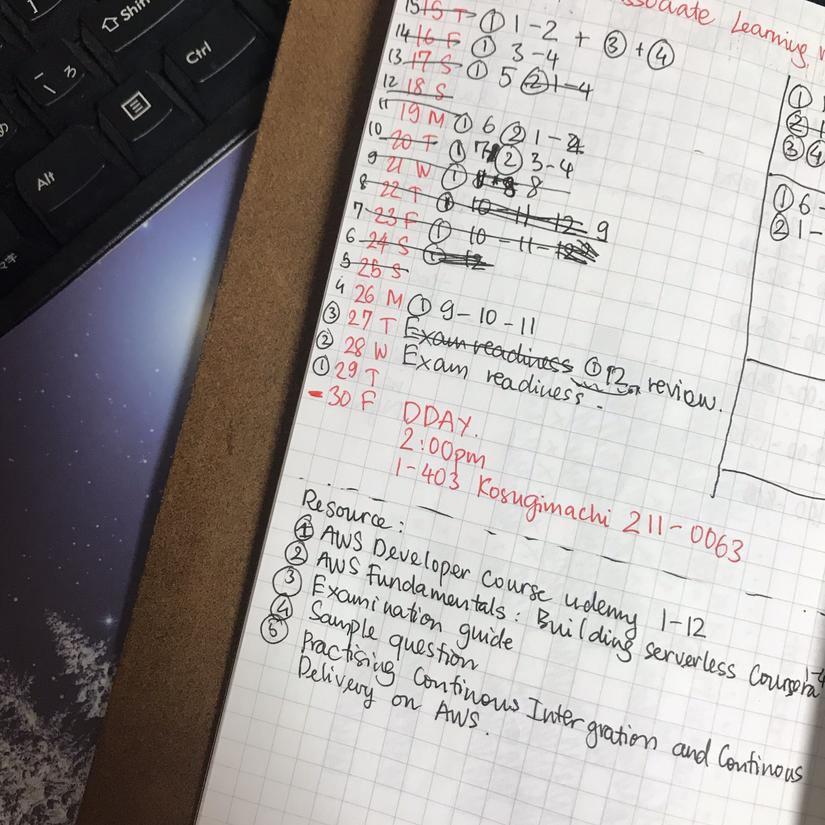 ssociate Learning
15 15 T ① 1-2 + ③ + ④
14 16 F ① 3-4
13 17 S ① 5 ② 1-4
12 18 S
11 19 M ① 6 ② 1-2
10 20 T ① 7 ② 3-4
9 21 W ① 8
8 22 T ① 10-11-12 9
7 23 F ① 10-11-12
6 24 S ① 12
5 25 S
4 26 M ① 9-10-11
③ 27 T Exam readiness ① 12, review.
② 28 W Exam readiness.
① 29 T
- 30 F DDAY.
2:00pm
1-403 Kosugimachi 211-0063
Resource:
① AWS Developer Course udemy 1-12
② AWS Fundamentals: Building serverless Coursera 1-4
③ Examination guide
④ Sample question
⑤ Practising Continous Intergration and Continous
Delivery on AWS.
①
②
③ ④
① 6-
② 1-
Shift
Ctrl
Alt
ろ